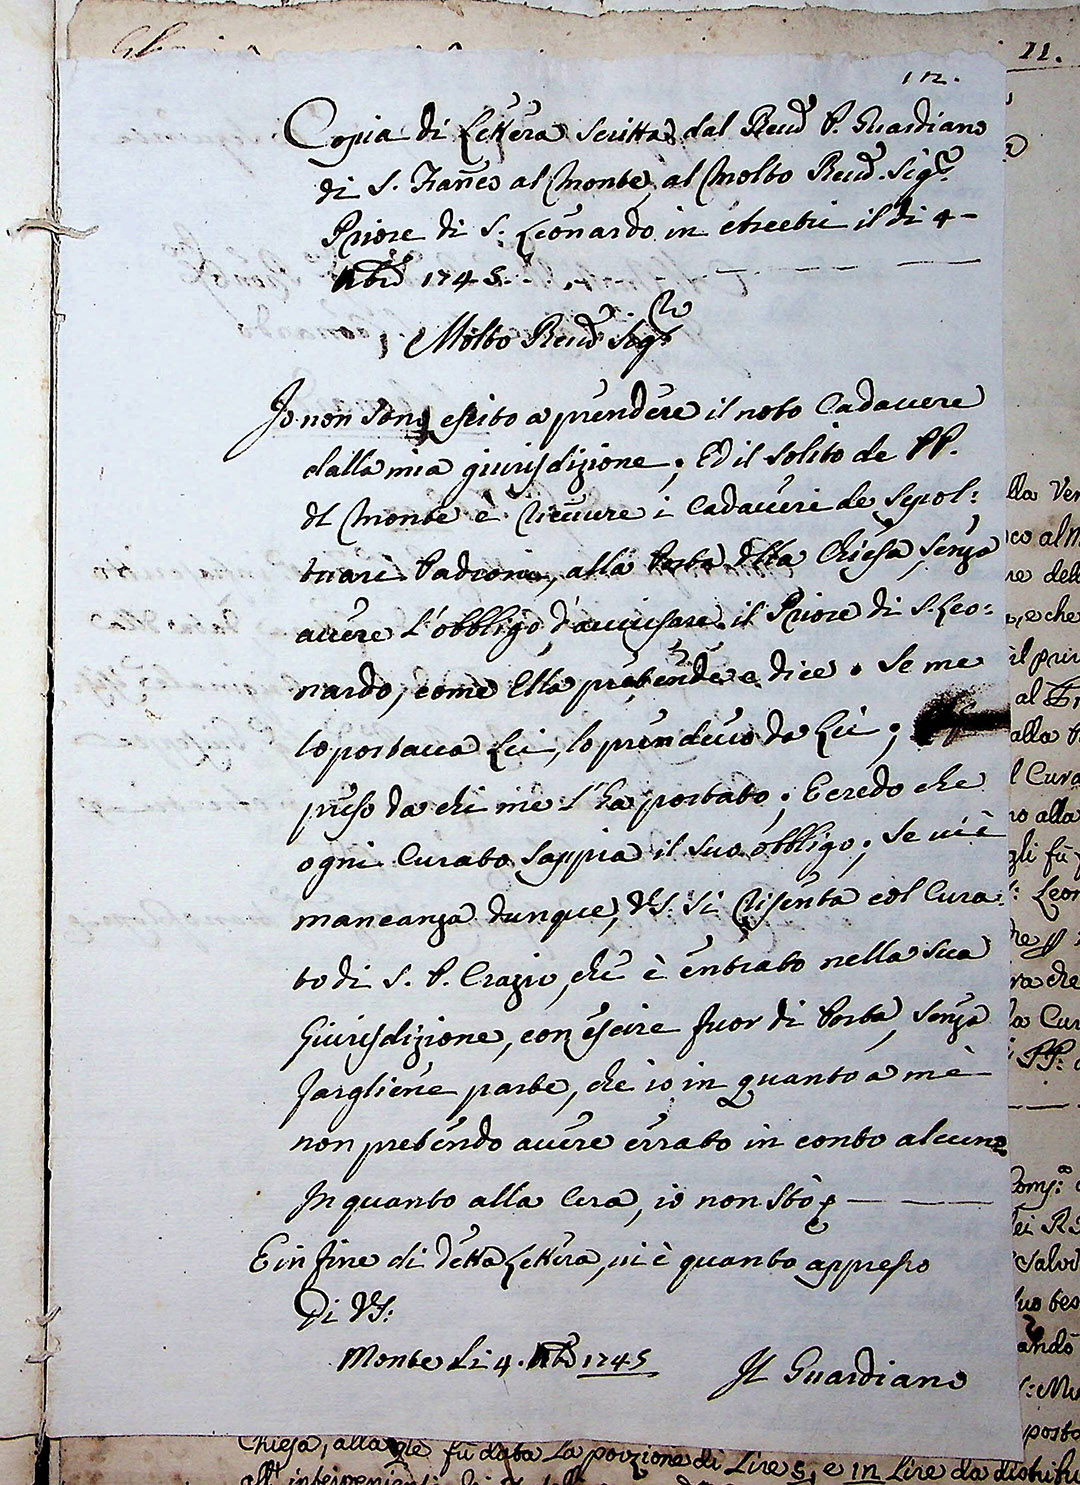 11.
112.
Copia di Lettera scritta dal Reud P. Guardiano
di S. Franco al Monte, al Molto Reud. Sigr.
Priore di S. Leonardo in Arcetri il dì 4
9bre 1745.
Molto Reud Sigr
Io non sono escito a prendere il noto Cadauere
dalla mia giurisdizione; Ed il solito de PP.
del Monte è riceuere i Cadaueri de Sepol:
tuari Padroni, alla Porta della Chiesa, senza
auere l'obbligo d'auuisare il Priore di S. Leo:
nardo, come Ella pretende e dice. Se me
lo portaua Lei, lo prendeuo da Lei;
preso da chi me l'ha portato; E credo che
ogni Curato sappia il suo obbligo; se ui è
mancanza dunque, VS. si risenta col Cura:
to di S. P. Crazio, che è entrato nella sua
Giurisdizione, con escire fuor di Porta, senza
fargliene parte, che io in quanto a me
non pretendo auere errato in conto alcuno
In quanto alla Cera, io non stò
E in fine di detta Lettera, ui è quanto appresso
Di VS:
Monte li 4. 9bre 1745
Il Guardiano
Chiesa, alla qle fù data la porzione di Lire 5, e in Lire da distribu